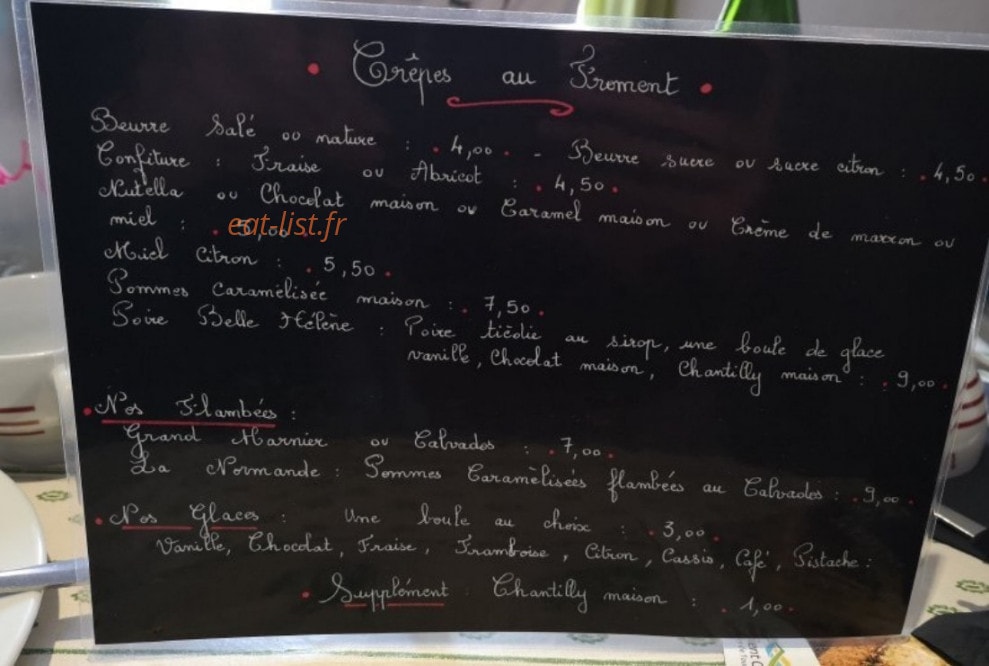 • Crêpes au Froment •
Beurre Salé ou nature : . 4,00 . - Beurre sucre ou sucre citron : . 4,50 .
Confiture : Fraise ou Abricot : . 4,50 .
Nutella ou Chocolat maison ou Caramel maison ou Crème de marron ou
miel : . 5,00 .
eat-list.fr
Miel Citron : . 5,50 .
Pommes caramélisée maison : . 7,50 .
Poire Belle Hélène : Poire tiédie au sirop, une boule de glace
vanille, Chocolat maison, Chantilly maison : . 9,00 .
• Nos Flambées :
Grand Marnier ou Calvados : . 7,00 .
La Normande : Pommes Caramèlisées flambées au Calvados : . 9,00 .
• Nos Glaces : Une boule au choix : . 3,00 .
Vanille, Chocolat, Fraise, Framboise, Citron, Cassis, Café, Pistache :
• Supplément : Chantilly maison : . 1,00 .